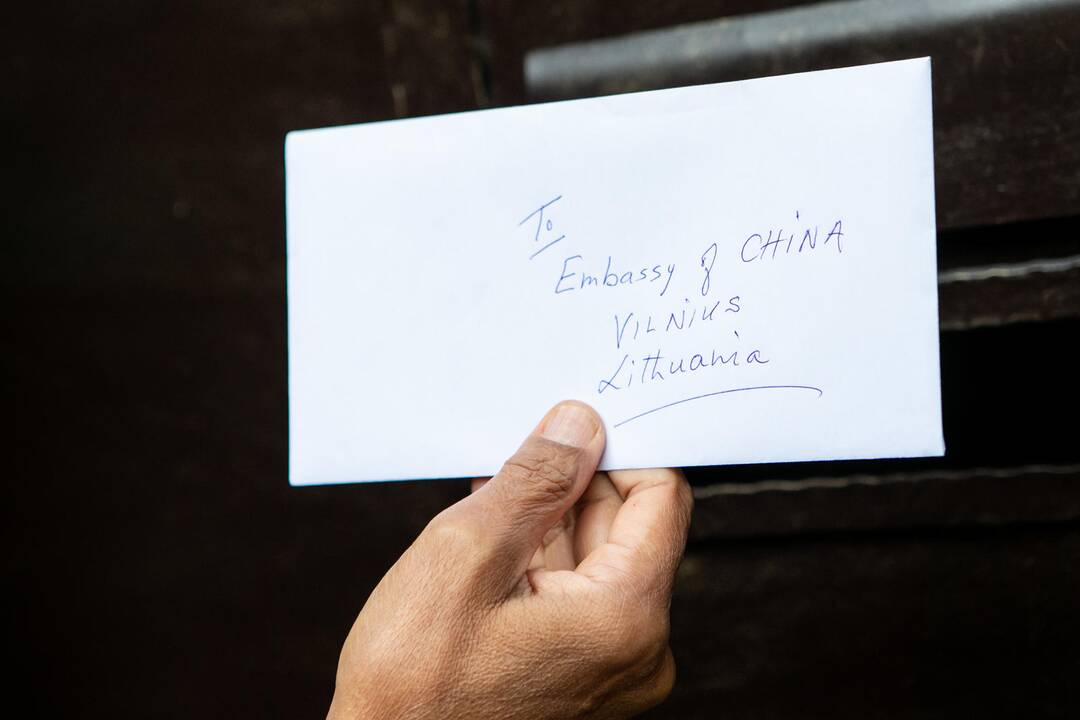 To
Embassy of CHiNA
ViLNiUS
Lithuania